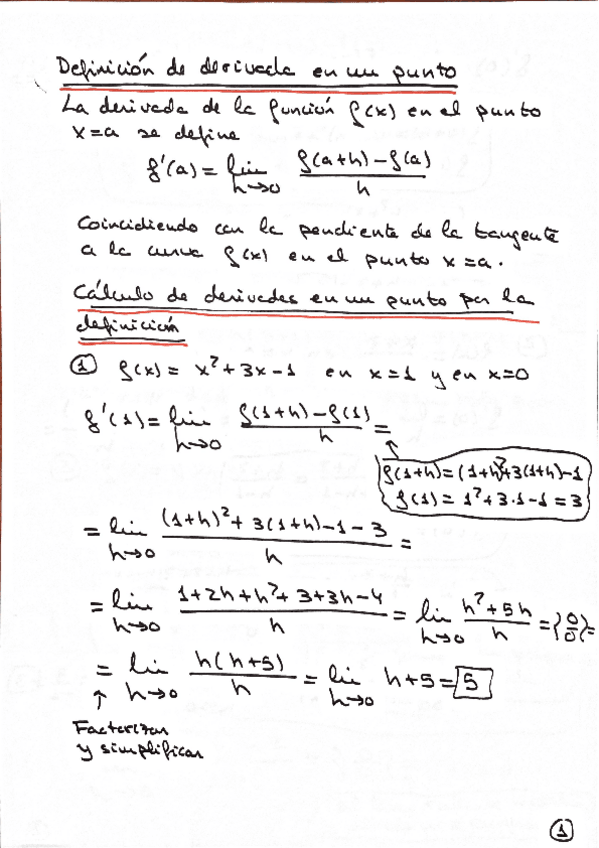 Definición de derivada en un punto
La derivada de la función f(x) en el punto
x=a se define
f'(a) = lim h→0 (f(a+h)-f(a))/h
Coincidiendo con la pendiente de la tangente
a la curva f(x) en el punto x=a.
Cálculo de derivadas en un punto por la
definición
① f(x) = x²+3x-1 en x=1 y en x=0
f'(1) = lim h→0 (f(1+h)-f(1))/h =
f(1+h)=(1+h)²+3(1+h)-1
f(1) = 1²+3·1-1=3
= lim h→0 ((1+h)²+3(1+h)-1-3)/h =
= lim h→0 (1+2h+h²+3+3h-4)/h = lim h→0 (h²+5h)/h = {0/0}=
= lim h→0 (h(h+5))/h = lim h→0 h+5 = 5
↑
Factorizar
y simplificar
①